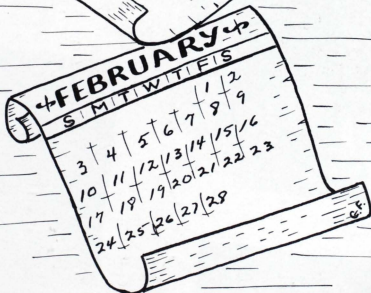 FEBRUARY
S M T W T F S
1 2
3 4 5 6 7 8 9
10 11 12 13 14 15 16
17 18 19 20 21 22 23
24 25 26 27 28